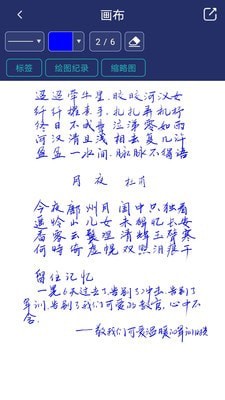 画布
2 / 6
标签 绘图纪录 缩略图
迢迢牵牛星,皎皎河汉女
纤纤擢素手,扎扎弄机杼
终日不成章 泣涕零如雨
河汉清且浅 相去复几许
盈盈一水间,脉脉不得语
月夜 杜甫
今夜鄜州月 闺中只独看
遥怜小儿女 未解忆长安
香雾云鬟湿 清辉玉臂寒
何时倚虚幌 双照泪痕干
留住记忆
一晃6天过去了,告别了冲击,告别了
军训,告别了我们可爱的教官,心中不
舍.
——致我们可爱温暖的军训